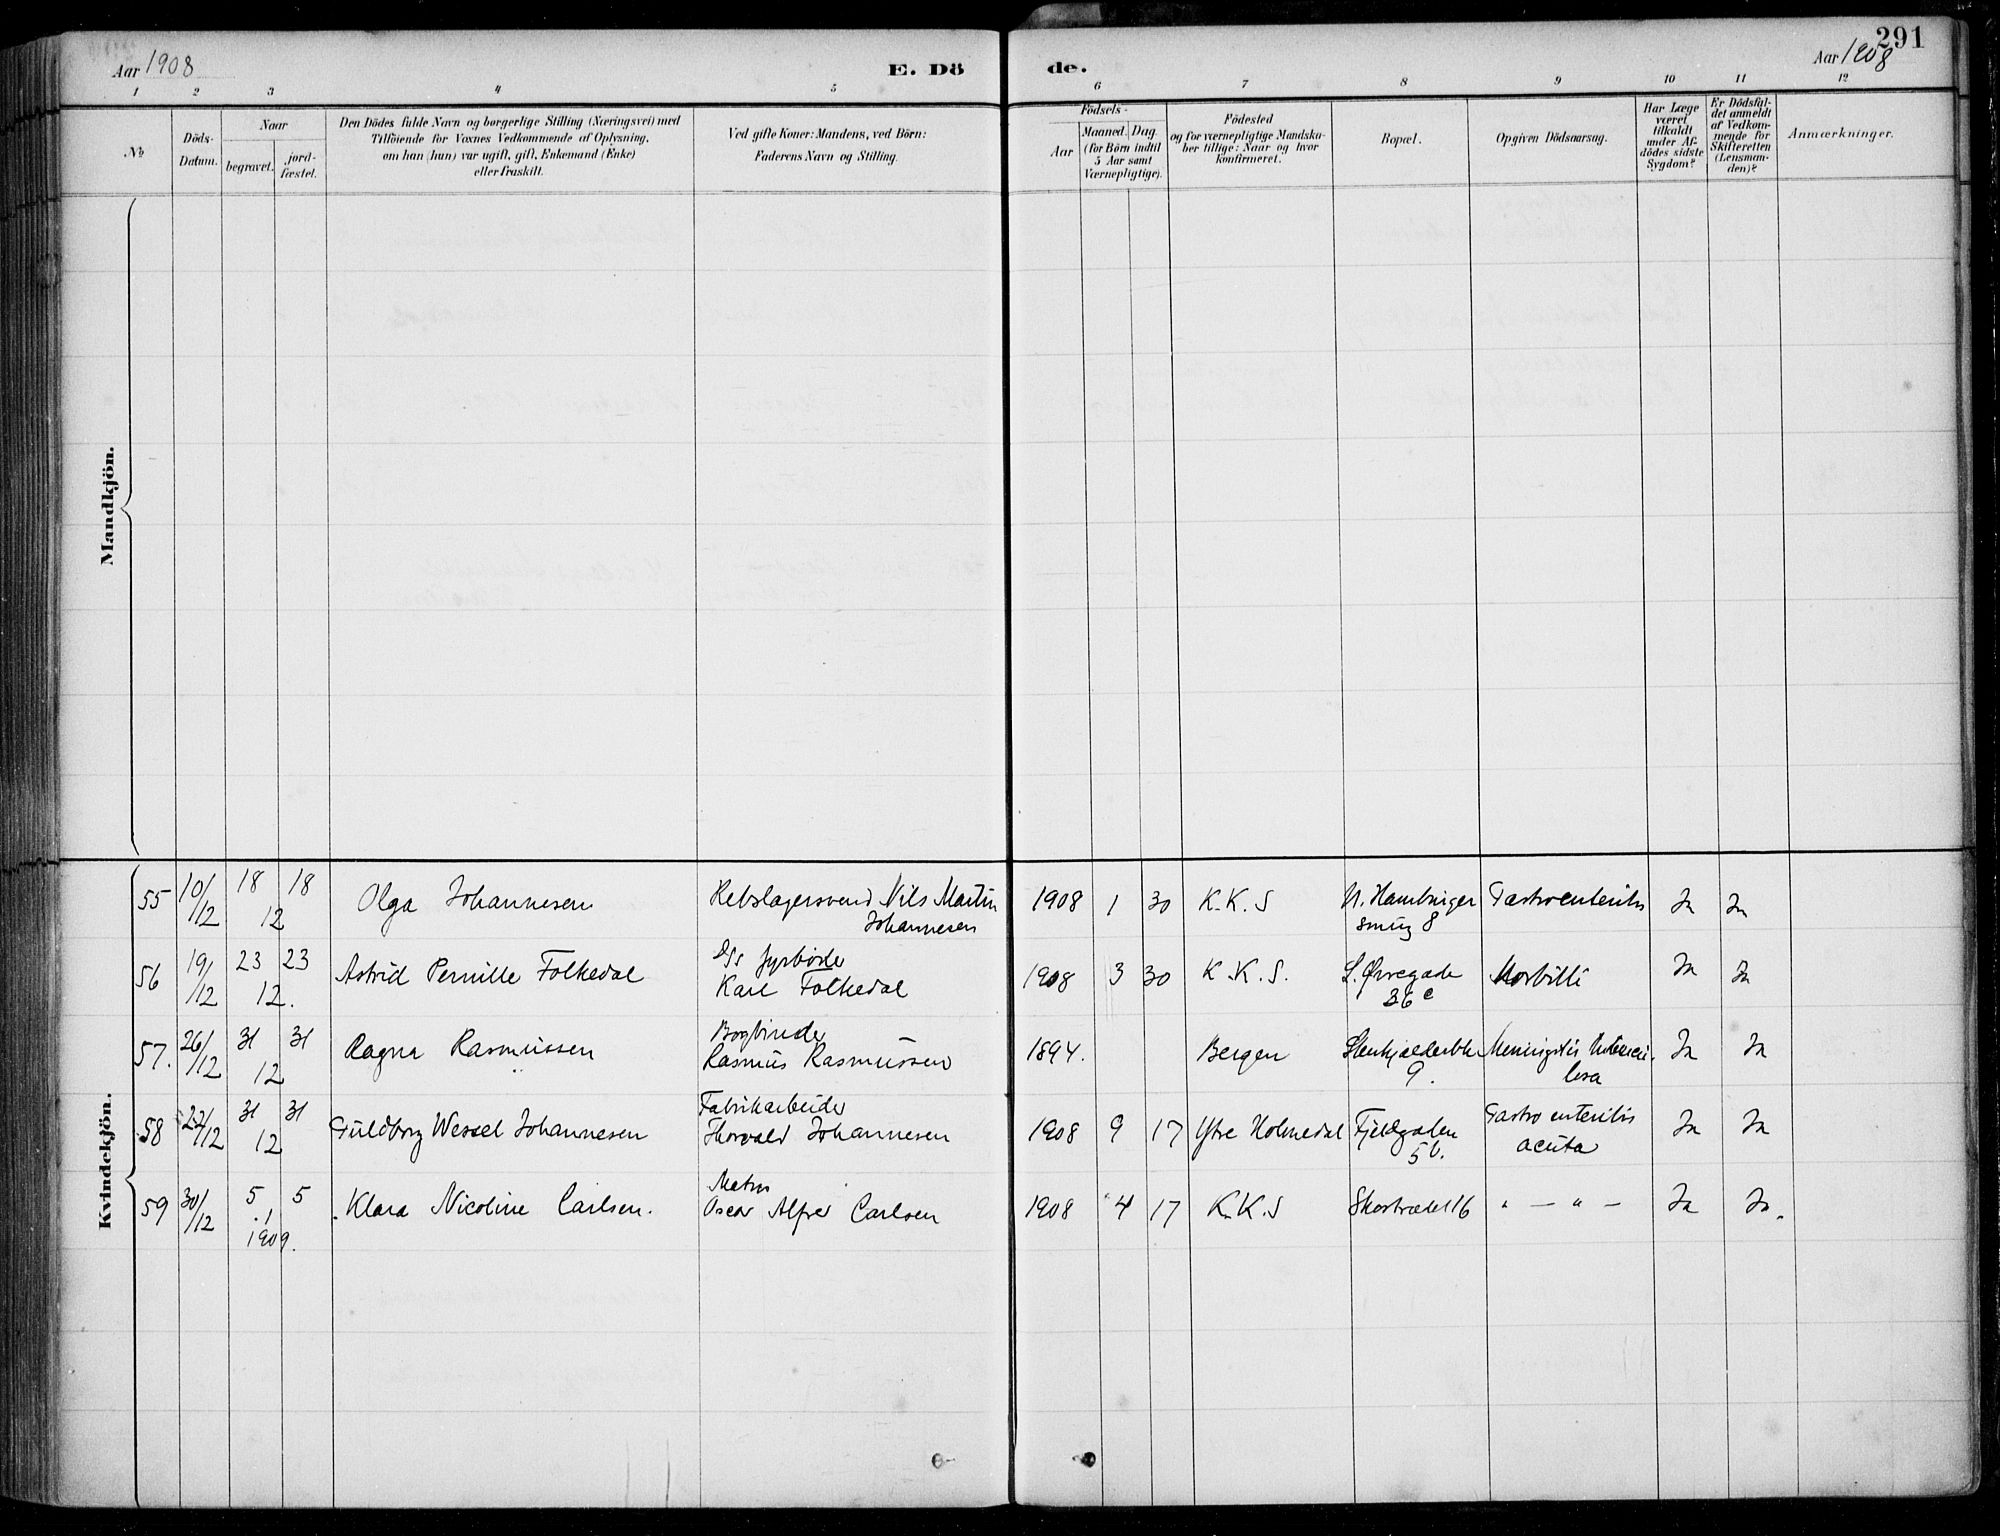 Aar 1908
E. Dö
de.
291
Aar 1908
1 2 3 4 5 6 7 8 9 10 11 12
No
Döds-Datum.
Naar
begravet.
jord-fæstet.
Den Dödes fulde Navn og borgerlige Stilling (Næringsvei) med
Tilföiende for Voxnes Vedkommende af Oplysning,
om han (hun) var ugift, gift, Enkemand (Enke)
eller fraskilt.
Ved gifte Koner: Mandens, ved Börn:
Faderens Navn og Stilling.
Födsels-
Aar
Maaned. Dag.
(for Börn indtil
5 Aar samt
Værnepligtige).
Födested
og for værnepligtige Mandska-
ber tillige: Naar og hvor
konfirmeret.
Bopæl.
Opgiven Dödsaarsag.
Har Læge
været
tilkaldt
under Af-
dödes sidste
Sygdom?
Er Dödsfal-
det anmeldt
af Vedkom-
mende for
Skifteretten
(Lensman-
den)?
Anmærkninger.
Mandkjön.
Kvindekjön.
55 10/12 18 18 12 Olga Johannesen Rebslagersvend Nils Martin Johannesen 1908 1 30 K.K.S N. Hamburger smug 8 Gastroenteritis Ja Ja
56 19/12 23 23 12. Astrid Pernille Folkedal Dss fyrbøder Karl Folkedal 1908 3 30 K.K.S. L. Øvregade 36 c Morbilli Ja Ja
57. 26/12 31 31 12 Ragna Rasmussen Bogbinder Rasmus Rasmussen 1894. Bergen 9. Meningitis tubercu- losa Ja Ja
58 22/12 31 31 12 Guldborg Wessel Johannesen Fabrikarbeider Thorvald Johannesen 1908 9 17 Ytre Holmedal Fjeldgaten 5 b. Gastro enteritis acuta Ja Ja
59 30/12 5 5 1 1909. Klara Nicoline Carlsen. Matros Oscar Alfred Carlsen 1908 4 17 K.K.S Skostrædet 16 " — " — Ja Ja.